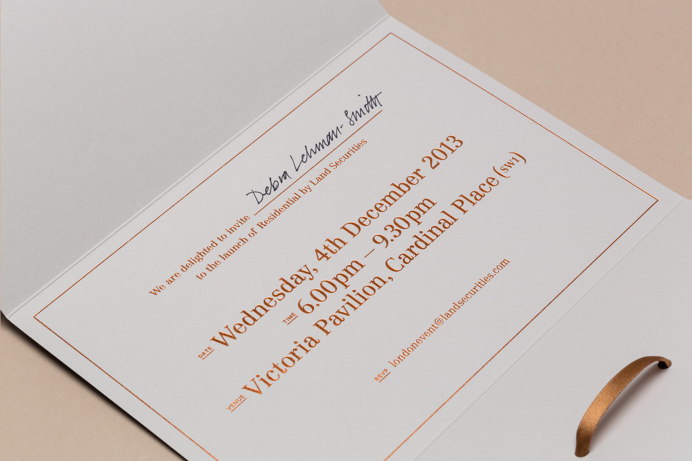 We are delighted to invite Debra Lehman-Smith
to the launch of Residential by Land Securities
DATE Wednesday, 4th December 2013
TIME 6.00pm – 9.30pm
VENUE Victoria Pavilion, Cardinal Place (SW1)
RSVP londonevent@landsecurities.com